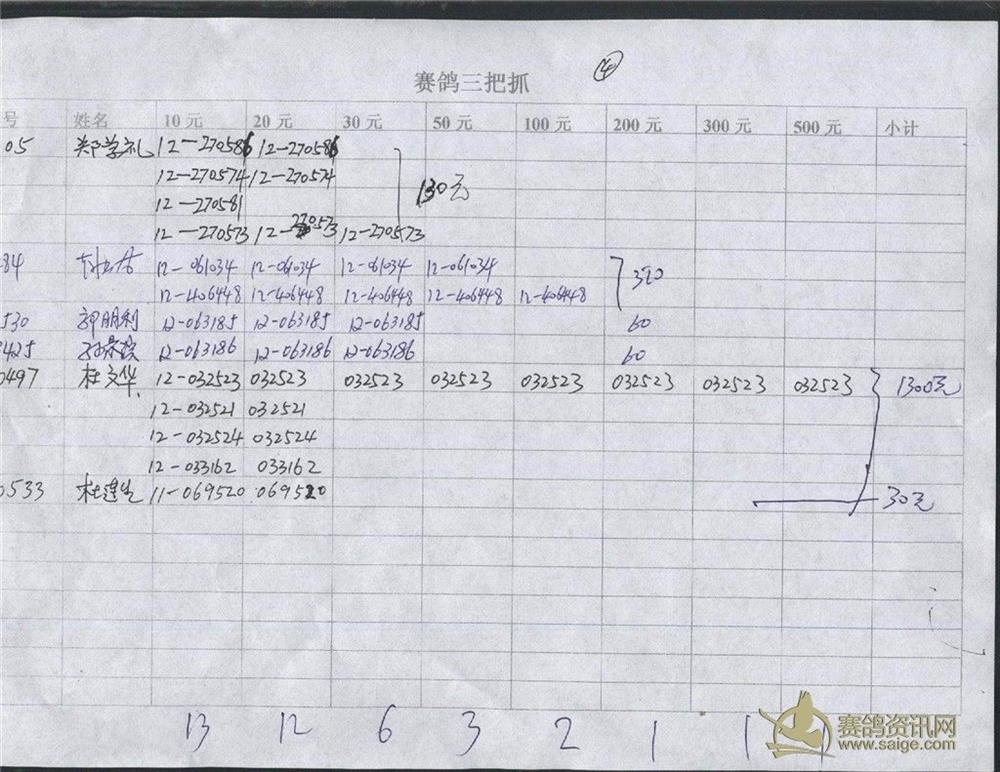 赛鸽三把抓 ④
号 姓名 10元 20元 30元 50元 100元 200元 300元 500元 小计
05 郑学礼 12-270586 12-270586
12-270574 12-270574
12-270581 130元
12-270573 12-270573 12-270573
84 12-061034 12-061034 12-061034 12-061034
12-406448 12-406448 12-406448 12-406448 12-406448 320
530 郭朋利 12-063185 12-063185 12-063185 60
425 12-063186 12-063186 12-063186 60
0497 杜文华 12-032523 032523 032523 032523 032523 032523 032523 032523 1300元
12-032521 032521
12-032524 032524
12-033162 033162
0533 杜莲生 11-069520 069520 30元
13 12 6 3 2 1 1 1
赛鸽资讯网
www.saige.com